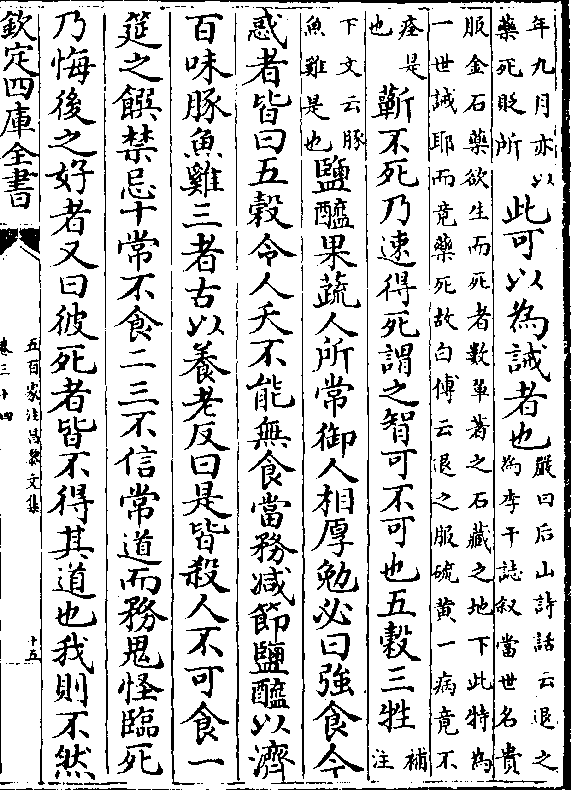 年九月亦以
藥死貶所
此可以為誡者也
嚴曰后山詩話云退之
為李干誌叙當世名貴
服金石藥欲生而死者數輩著之石藏之地下此特為
一世誡耶而竟藥死故白傅云退之服硫黄一病竟不
痊是
也
蘄不死乃速得死謂之智可不可也五穀三牲
補
注
下文云豚
魚雞是也
鹽醯果蔬人所常御人相厚勉必曰強食今
惑者皆曰五穀令人夭不能無食當務減節鹽醯以濟
百味豚魚雞三者古以養老反曰是皆殺人不可食一
筵之饌禁忌十常不食二三不信常道而務鬼怪臨死
乃悔後之好者又曰彼死者皆不得其道也我則不然
欽定四庫全書
五百家注昌黎文集
卷三十四
十五